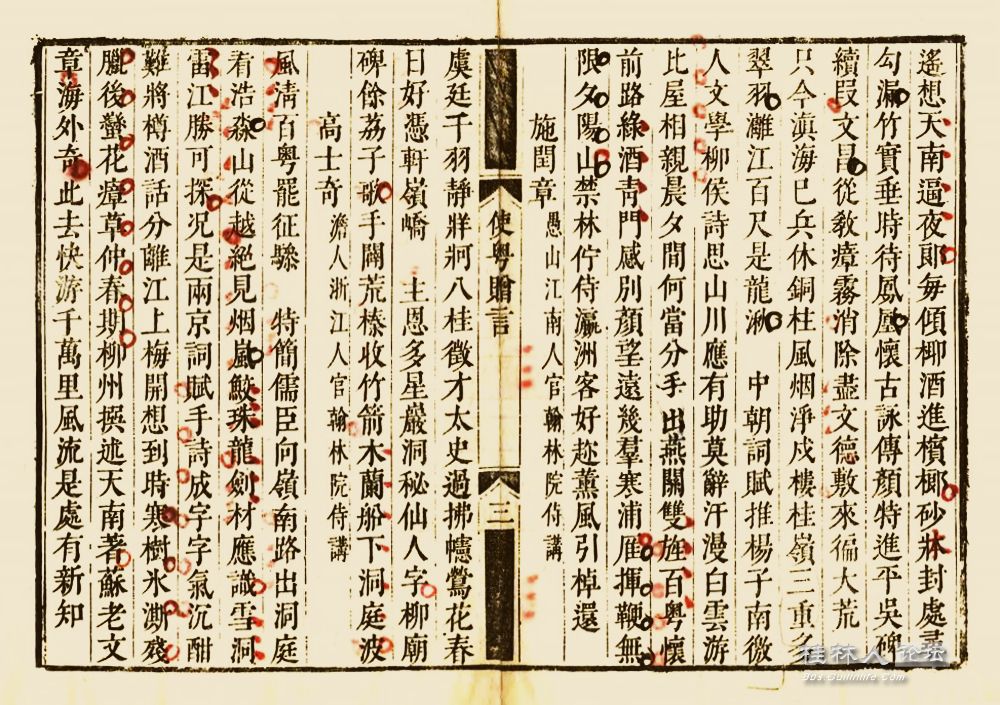 遙想天南逼夜郎每傾椰酒進檳榔砂牀封處尋
勾漏竹實垂時待鳳凰懷古詠傳顏特進平吳碑
續叚文昌從敎瘴霧消除盡文德敷來徧大荒
只今滇海已兵休銅柱風烟淨戍樓桂嶺三重多
翠羽灕江百尺是龍湫　中朝詞賦推楊子南徼
人文學柳侯詩思山川應有助莫辭汗漫白雲游
比屋相親晨夕間何當分手出燕關雙旌百粤懷
前路綠酒靑門感別顔望遠幾羣寒浦雁揮鞭無
限夕陽山禁林佇侍瀛洲客好趂薰風引棹還
施閏章 愚山江南人官翰林院侍講
虞廷千羽靜牂牁八桂徵才太史過拂幰鶯花春
日好憑軒嶺嶠　主恩多星巖洞秘仙人字柳廟
碑餘荔子歌手闢荒榛收竹箭木蘭船下洞庭波
高士奇 澹人浙江人官翰林院侍講
風淸百粤罷征驂　特簡儒臣向嶺南路出洞庭
看浩淼山從越絕見烟嵐鮫珠龍劍材應識雪洞
雷江勝可探况是兩京詞賦手詩成字字氣沉酣
難將樽酒話分離江上梅開想到時寒樹氷澌殘
臘後蠻花瘴草仲春期柳州撰述天南著蘇老文
章海外奇此去快游千萬里風流是處有新知
使粤贈言
三
桂林人论坛
bbs.Guilinlife.com